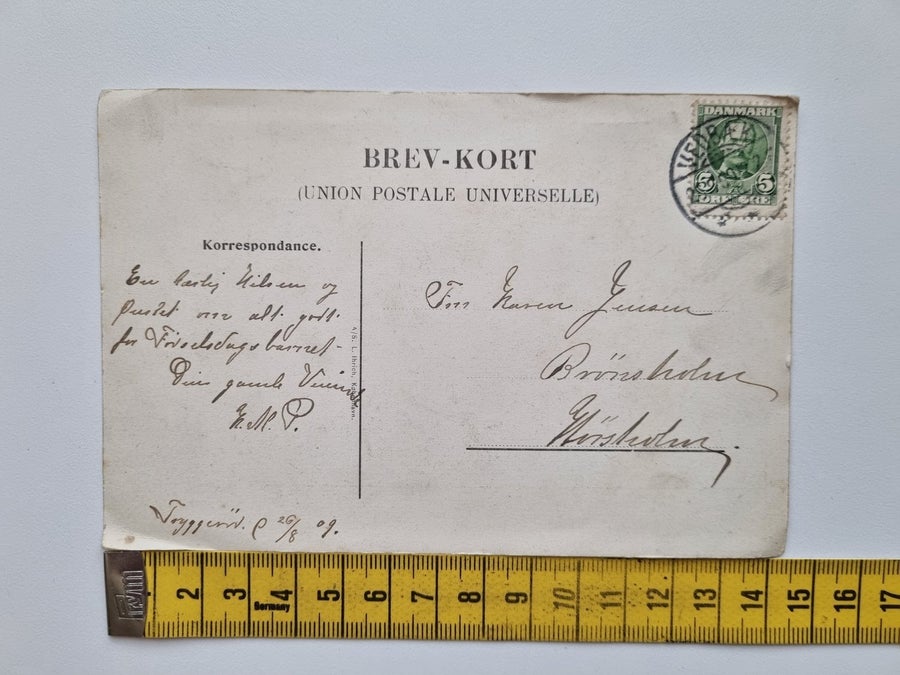 BREV-KORT
(UNION POSTALE UNIVERSELLE)
DANMARK
VEDBÆK
5 5
ØRE
Korrespondance.
En kærlig Hilsen og
Ønsket om alt godt
for Fødselsdagsbarnet
Din gamle
K. M. P.
Tryggerød. d 26/8 09.
A/S: L. Ihrich,
Frk Karen Jensen
Brönsholm
Hörsholm.
2 3 4 5 6 7 8 9 10 11 12 13 14 15 16 17
Germany